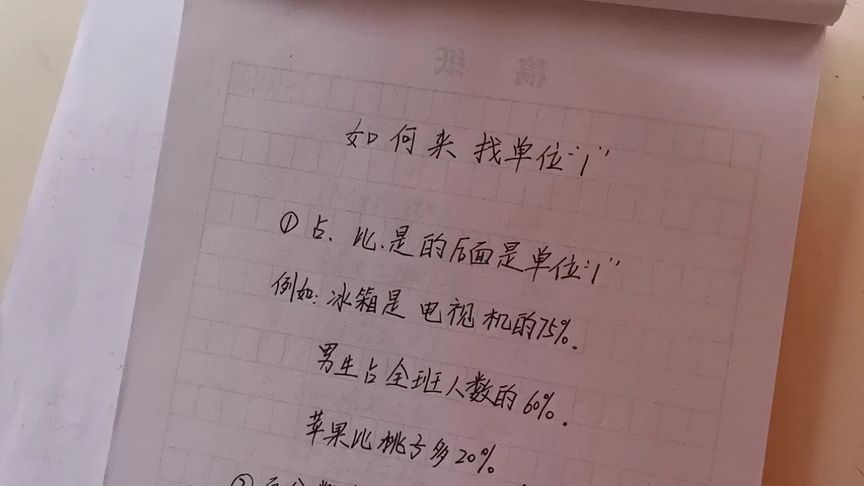 稿 纸
如何来找单位"1"
①占、比、是的后面是单位"1"
例如:冰箱是电视机的75%。
男生占全班人数的60%。
苹果比桃子多20%。